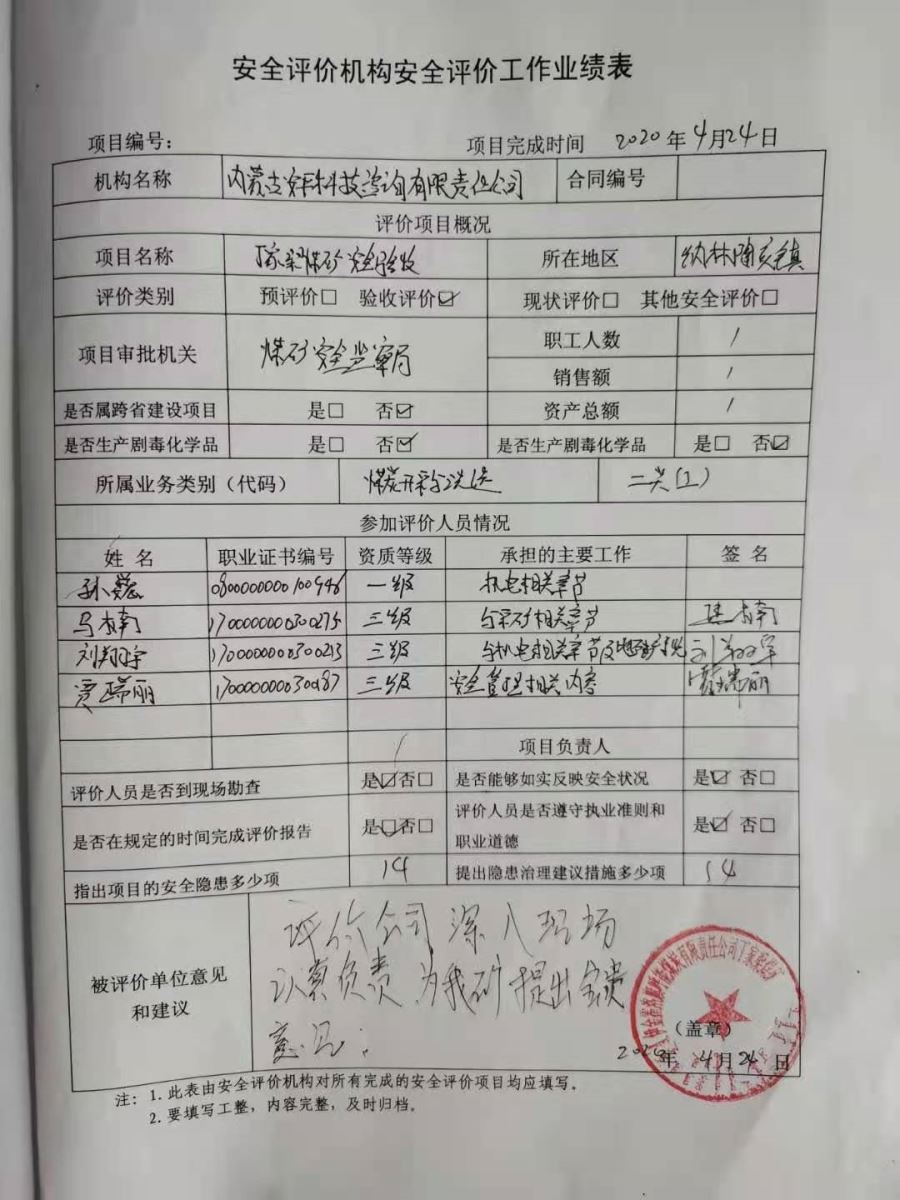 安全评价机构安全评价工作业绩表
项目编号： 项目完成时间 2020年4月24日
机构名称 内蒙古 科技咨询有限责任公司 合同编号
评价项目概况
项目名称 丁家渠煤矿安全验收 所在地区 纳林陶亥镇
评价类别 预评价□ 验收评价☑ 现状评价□ 其他安全评价□
项目审批机关 煤矿安全监察局 职工人数 /
销售额 /
是否属跨省建设项目 是□ 否☑ 资产总额 /
是否生产剧毒化学品 是□ 否☑ 是否生产剧毒化学品 是□ 否☑
所属业务类别（代码） 煤炭开采与洗选 二类(1)
参加评价人员情况
姓 名 职业证书编号 资质等级 承担的主要工作 签 名
孙 0800000000100946 一级 机电相关章节
马 南 1700000000300275 三级 与采矿相关章节 南
刘翔宇 1700000000300213 三级 与机电相关章节及 刘翔宇
贾瑞丽 1700000000300187 三级 安全管理相关内容 贾瑞丽
项目负责人
评价人员是否到现场勘查 是☑否□ 是否能够如实反映安全状况 是☑ 否□
是否在规定的时间完成评价报告 是☑否□ 评价人员是否遵守执业准则和
职业道德 是☑ 否□
指出项目的安全隐患多少项 14 提出隐患治理建议措施多少项 14
被评价单位意见
和建议
评价公司深入现场
认真负责，为我矿提出宝贵
意见；
（盖章）
2020年4月24日
注：1. 此表由安全评价机构对所有完成的安全评价项目均应填写。
2. 要填写工整，内容完整，及时归档。